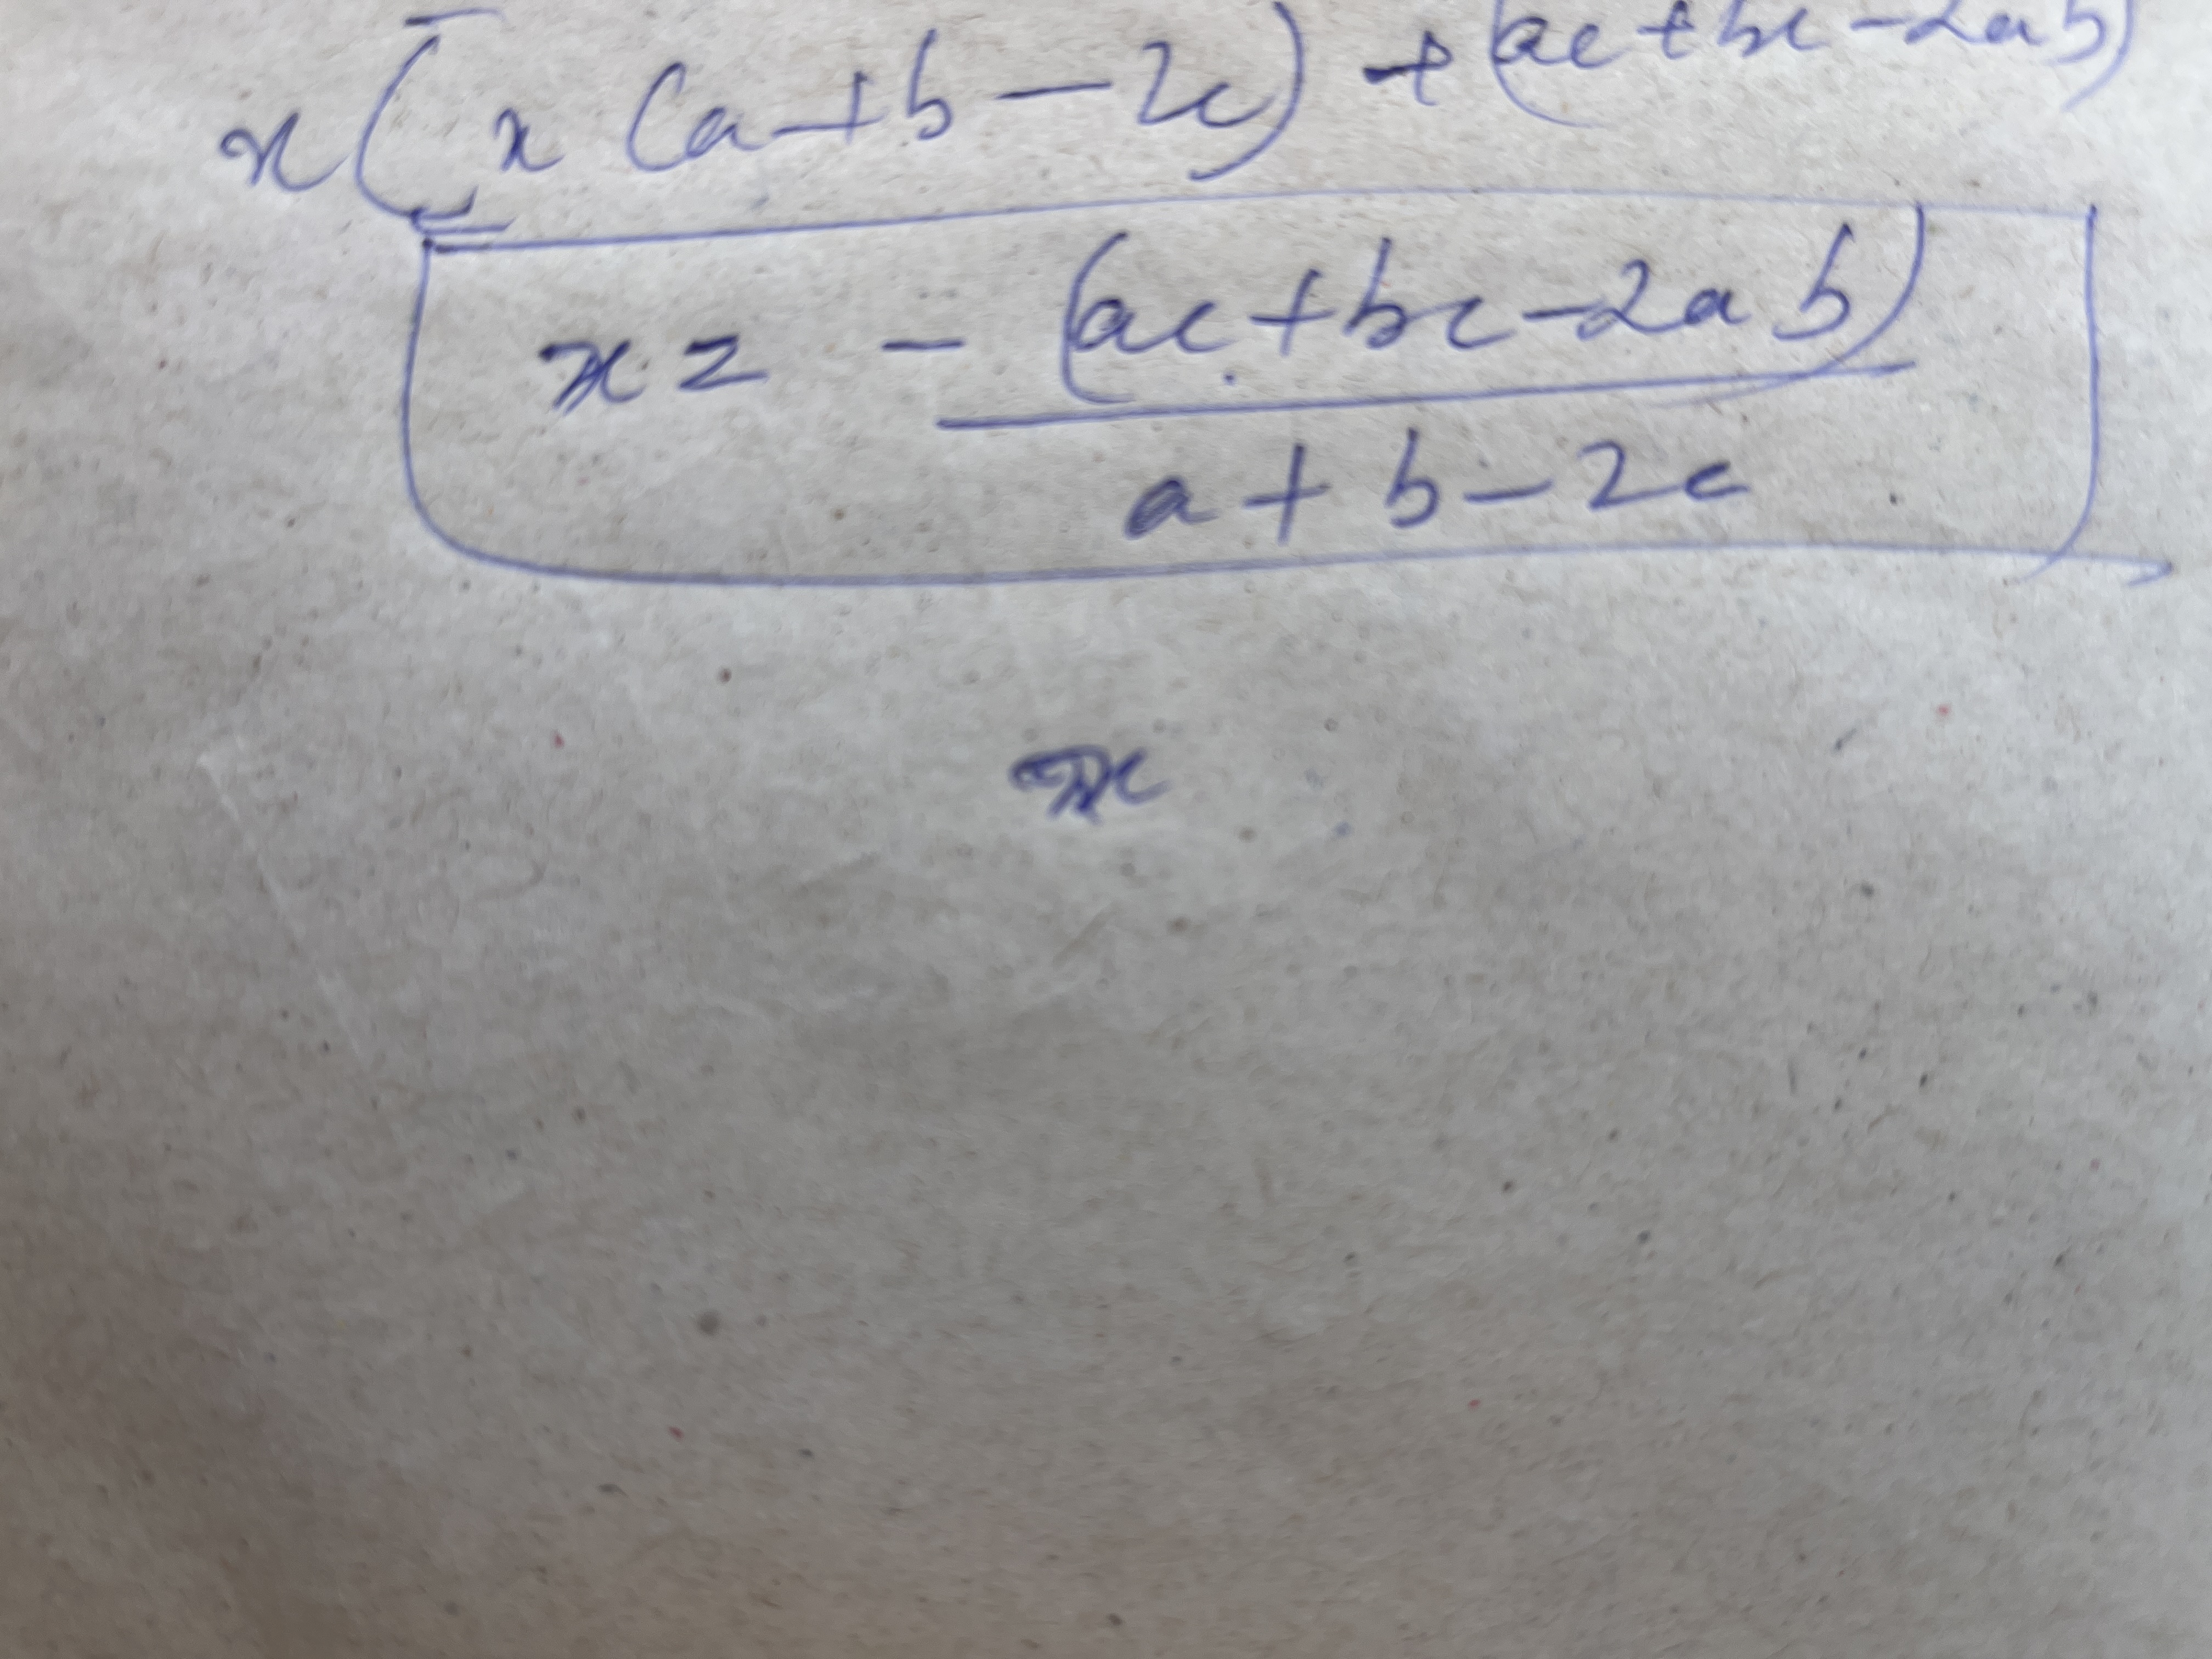 x(x(a+b-2c)+(ac+bc-2ab)
x = -(ac+bc-2ab)
a+b-2c
x